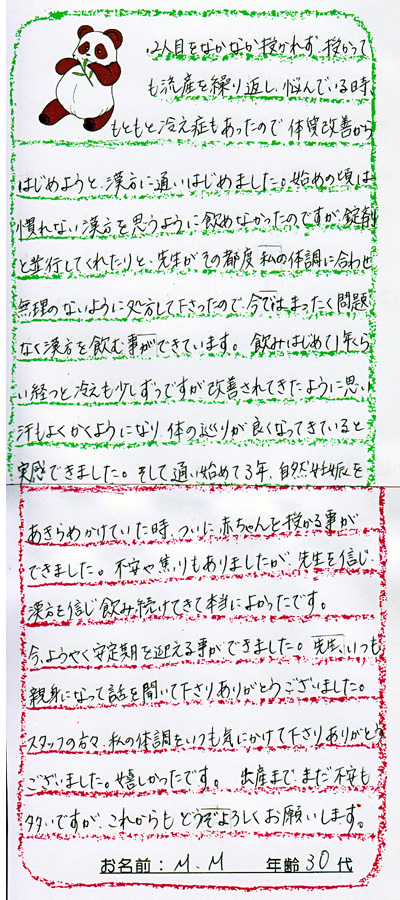 2人目をなかなか授かれず、授かって
も流産を繰り返し、悩んでいる時、
もともと冷え症もあったので体質改善から
はじめようと、漢方に通いはじめました。始めの頃は
慣れない漢方を思うように飲めなかったのですが、錠剤
と並行してくれたりと、先生がその都度私の体調に合わせ
無理のないように処方して下さったので、今ではまったく問題
なく漢方を飲む事ができています。飲みはじめて1年くら
い経つと冷えも少しずつですが改善されてきたように思い
汗もよくかくようになり、体の巡りが良くなってきていると
実感できました。そして通い始めて3年、自然妊娠を
あきらめかけていた時、ついに赤ちゃんを授かる事が
できました。不安や焦りもありましたが、先生を信じ
漢方を信じ飲み続けてきて本当によかったです。
今、ようやく安定期を迎える事ができました。先生、いつも
親身になって話を聞いて下さりありがとうございました。
スタッフの方々、私の体調をいつも気にかけて下さりありがとう
ございました。嬉しかったです。出産まで、まだ不安も
多いですが、これからもどうぞよろしくお願いします。
お名前：M.M 年齢30代